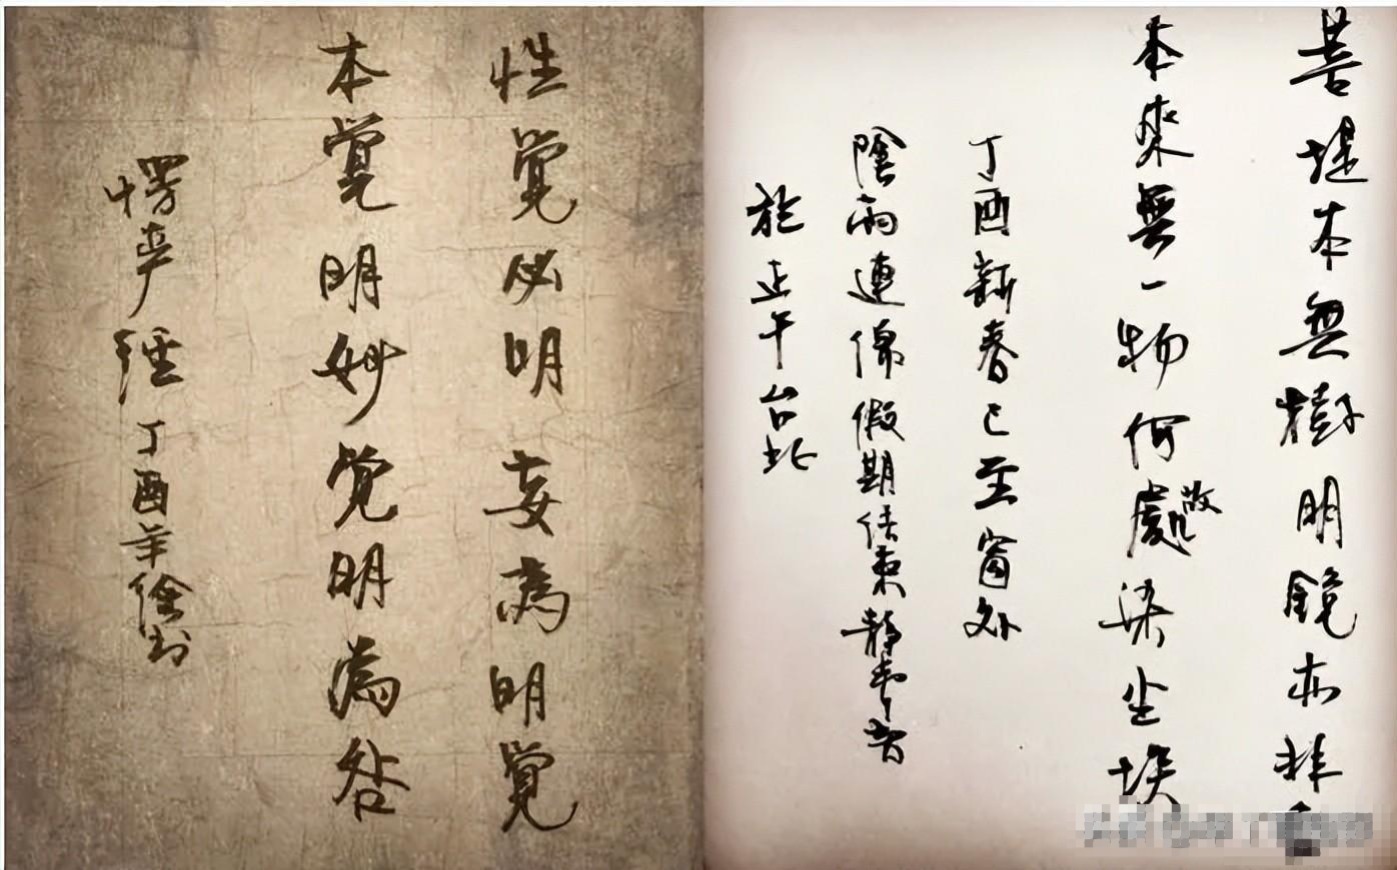 菩提本無樹明鏡亦非
本來無一物何處染尘埃
丁酉新春已至窗外
陰雨連綿假期结束靜
於正午台北
性覚必明妄為明覚
本覚明妙覚明為咎
楞严經丁酉年徐书